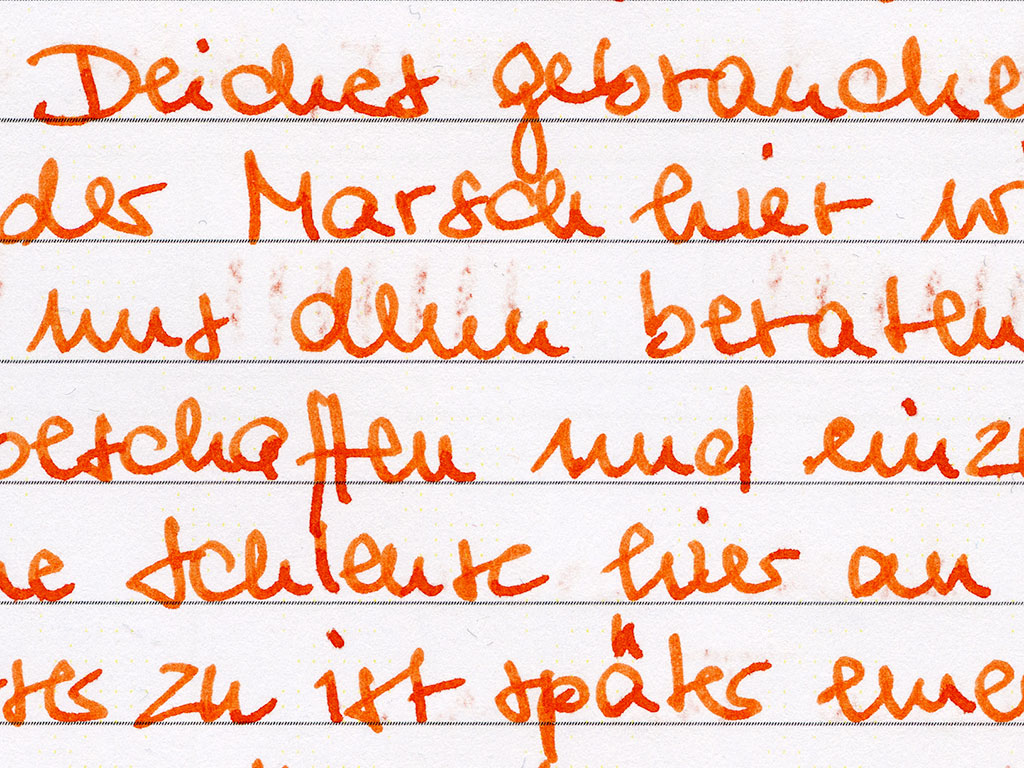 Deiches gebrauche
der Marsch hier
uns denn beraten
beschaffen und einz
ne Schleuse hier an
zu ist später eine